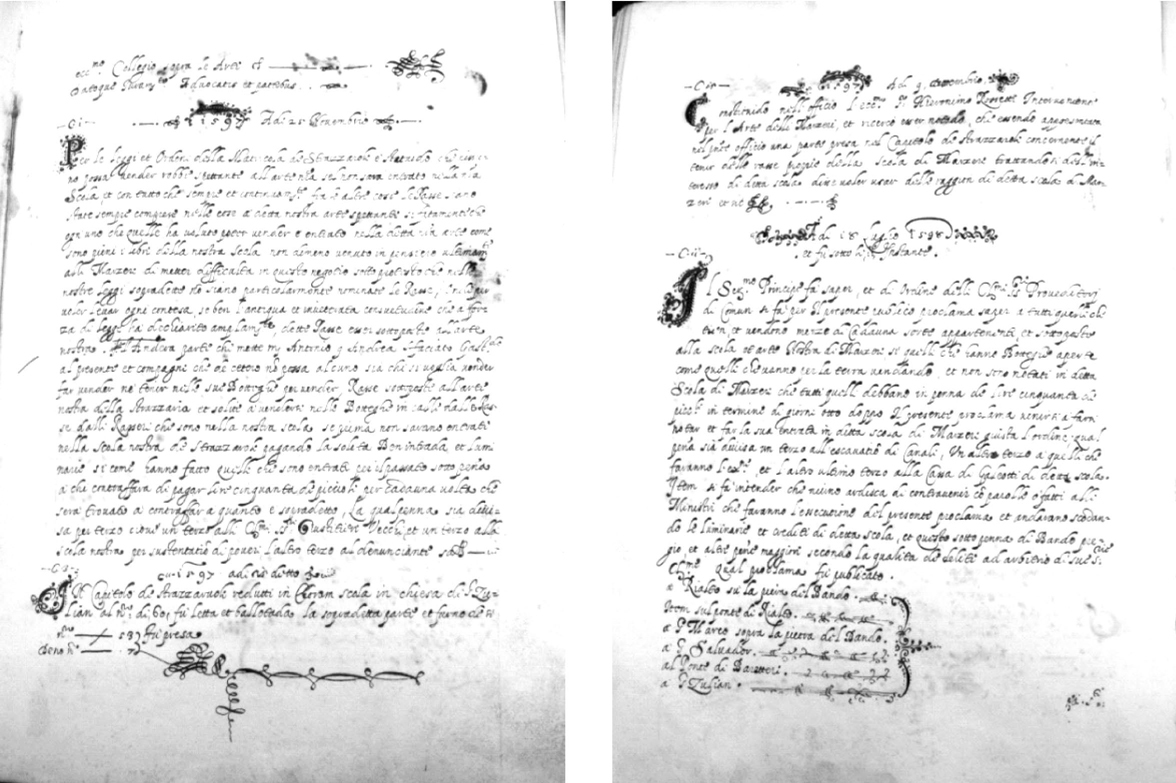 ecc.mo Collegio sopra le Arti et
Advocatis et
1597 Adi 25
Per le leggi et Ordeni della Matricola de Strazzaroli è statuido che
no possa vender robbe spettante all'arte nra se non sarà entrato nella nra
Scola, et con tutto che sempre et continuam.te fra le altre cose le Rasse siano
state sempre comprese nelle robe a detta nostra arte spettanti
ogn'uno che quelle ha voluto poter vender è entrato nella detta nra arte come
sono pieni i libri della nostra scola non dimeno venuto in pensiero ultimam.te
alli Marzeri di metter difficoltà in questo negotio sotto pretesto che nelle
nostre leggi sopradette no siano particolarmente nominate le Rasse,
voler levar ogni contesa, se ben l'antiqua et inveterata consuetudine che à forza
za di legge ha dechiarito ampiam.te dette Rasse esser sottoposte all'arte
nostra. L'Andera parte che mette m. Antonio q. Andrea
al presente et compagni che de cetero no possa alcuno sia chi si voglia vender
far vender ne tener nelle sue Botteghe per vender, Rasse sottoposte all'arte
nostra della Strazzaria et solite a vendersi nelle Botteghe in calle
se dalli Rasseri che sono nella nostra scola se prima non saranno entrati
nella Scola nostra de Strazzaroli pagando la solita Ben intrada, et lumi
narie si come hanno fatto quelli che sono entrati per il passato sotto pena
a chi contraffara di pagar lire cinquanta de piccoli per cadauna volta che
sera trovato a contraffar a quanto è sopradetto, La qual penna sia divi-
sa per terzo cioè un terzo alli Cl.mi S.ri Giustitieri Vecchi, et un terzo alla
scola nostra per sustentatio di poveri l'altro terzo al denunciante
1597 adi detto
Il Capitolo de Strazzaroli redutti in loram scola in chiesa di S. Zu-
lian al n.o di 60, fu letta et ballottada la sopradetta parte, et furno de sì
n.o 53 fu presa
de no n.o 7
1597 Adi 9
Constituido nell'officio l'ecc.te S. Hieronimo Interveniente
per l'Arte delli Marzeri, et ricercò esser notado, che essendo appresentata
nel pnte officio una parte presa nel Capitolo de Strazzaroli concernente il
tenir delle rasse proprie della scola di Marzeri trattandosi dell'in-
teresse di detta scola dice voler usar delle raggion di detta scola di Mar-
zeri et ut
Adi 18 luglio 1598
et fu sotto l' instante.
Il Ser.mo Principe fa saper, et di Ordene delli Cl.mi SS.ri Proveditori
di Comun si fa per il presente publico proclama saper a tutti quelli che
tien, et vendono merze di Cadauna sorte appartenenti, et sottoposte
alla scola et arte Nostra di Marzeri si quelli che hanno Botteghe aperte
come quelli che vanno per la terra vendendo, et non sono notati in detta
Scola di Marzeri che tutti quelli debbano in penna de lire cinquanta de
piccoli in termine di giorni otto doppo il presente proclama venirsi a farsi
notar et far la sua entrata in detta scola di Marzeri giusta l'ordine, qual
pena sia divisa un terzo all'escavatio di Canali, Un altro terzo a quelli che
faranno l'es.ne, et l'altro ultimo terzo alla Cassa di Galeotti di detta scola.
Item si fa intender che niuno ardisca di contravenir cō parolle o fatti alli
Ministri che faranno l'essecutione del presente proclama et andarano scoden-
do le luminarie et crediti di detta scola, et questo sotto penna di Bando
gio, et altre pene maggiori secondo la qualità de delitti ad arbitrio di sue S.rie
Cl.me Qual proclama fu publicato.
a Rialto su la piera del Bando.
Item sul ponte di Rialto.
a S. Marco sopra la pietra del Bando.
a S. Salvador.
al Ponte di Baretteri.
a S. Zulian.